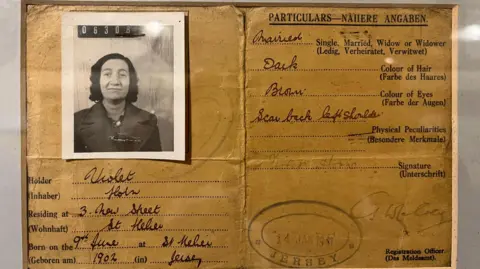 PARTICULARS—NÄHERE ANGABEN.
Married
Single, Married, Widow or Widower
(Ledig, Verheiratet, Verwitwet)
Dark
Colour of Hair
(Farbe des Haares)
Brown
Colour of Eyes
(Farbe der Augen)
Scar back left shoulder
Physical Peculiarities
(Besondere Merkmale)
Signature
(Unterschrift)
Registration Officer.
(Das Meldeamt).
JERSEY
Holder Violet
(Inhaber)
Residing at 3. New Street
(Wohnhaft) St Helier
Born on the 9th June at St Helier
(Geboren am) 1902 (in) Jersey